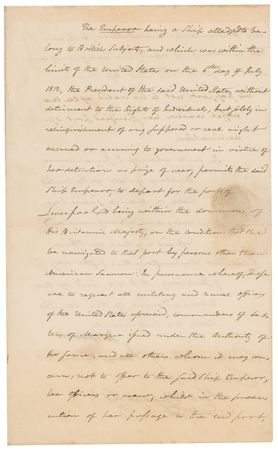 The Emperor being a Ship alledged to be-
long to British Subjects, and which was within the
limits of the United States on the 6th day of July
1812, the President of the said United States, without
detriment to the Rights of Individuals, but solely in
relinquishment of any supposed or real right
accrued or accruing to government in virtue of
her detention as prize of war, permits the said
Ship Emperor, to depart for the port of
Liverpool, being within the dominions of
His Britannic Majesty, on the condition that she
be navigated to that port by persons other than
American Seamen: In pursuance whereof, these
are to request all military and naval officers
of the United States aforesaid, commanders of Let-
ters of Marque issued under the Authority of
the same, and all others whom it may con-
cern, not to offer to the said Ship Emperor,
her officers or crew, whilst in the prose-
cution of her passage to the said port,